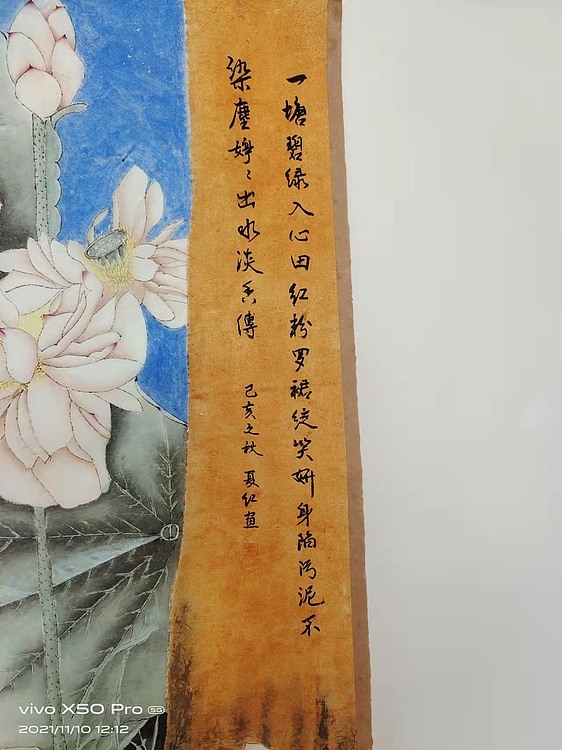 一塘碧绿入心田红粉罗裙绽笑妍身陷污泥不
染塵婷々出水淡香傳
己亥之秋 夏红画
vivo X50 Pro 5G
2021/11/10 12:12